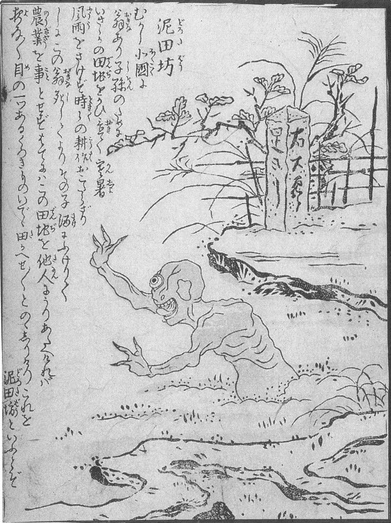 泥田坊
むかし北國に
翁あり子孫のために
いさゝかの田地をかひ置て寒暑
風雨をさけず時々の耕作おこたらざり
しにこの翁死してよりその子酒にふけりて
農業を事とせずはてにはこの田地を他人にうりあたへければ
夜な〳〵目の一つあるくろきものいでゝ田かへせ〳〵とのゝしりけりこれを
泥田坊といふとぞ